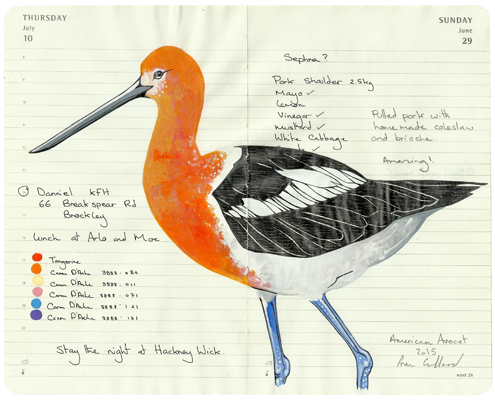 THURSDAY
July
10
SUNDAY
June
29
Sephra?
Pork Shoulder 2.5kg
Mayo ✓
Lemon
Vinegar ✓
Mustard ✓
White Cabbage
Pulled pork with
home made coleslaw
and brioche.
Amazing!
Danniel KFH
66 Breakspear Rd
Brockley
Lunch at Arlo and Moe
Tangerine
Caran D'Ache 3888 . 030
Caran D'Ache 3888 . 011
Caran D'Ache 3888 . 071
Caran D'Ache 3888 . 161
Caran D'Ache 3888 . 131
Stay the night at Hackney Wick.
American Avocet
2015
week 26